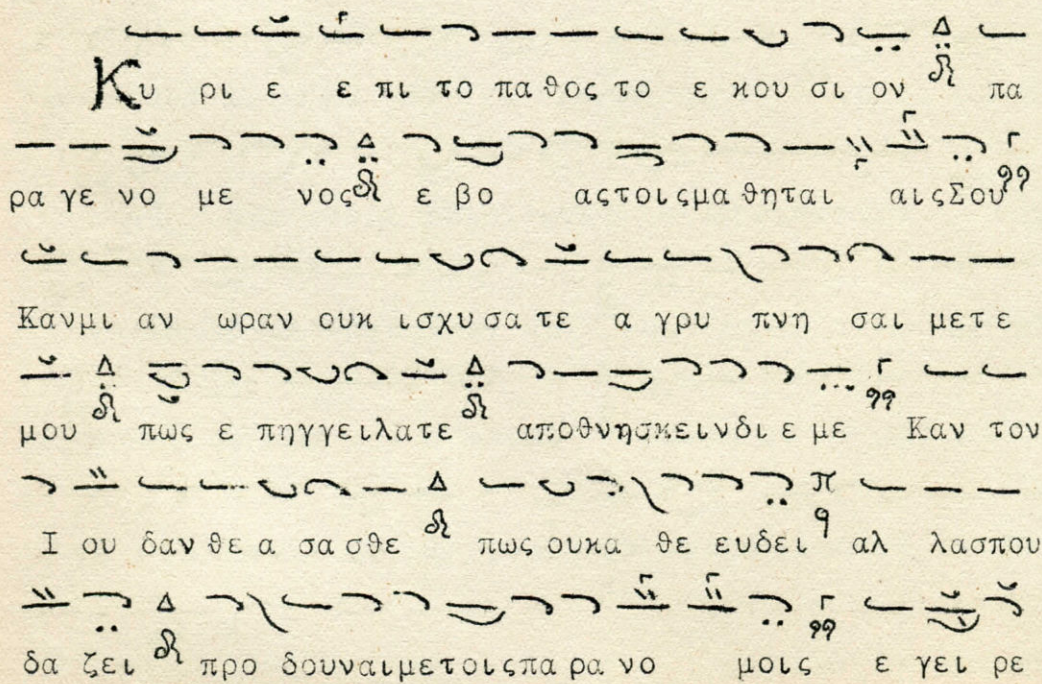 Κυ ρι ε ε πι το πα θος το ε κου σι ον πα
ρα γε νο με νος ε βο ας τοις μα θηται αις Σου
Καν μι αν ωραν ουκ ισχυ σα τε α γρυ πνη σαι με τ ε
μου πως ε πηγγειλατε αποθνησκειν δι ε με Καν τον
Ι ου δαν θε α σα σθε πως ουκα θε ευδει αλ λασπου
δα ζει προ δουναι με τοις πα ρα νο μοις ε γει ρε